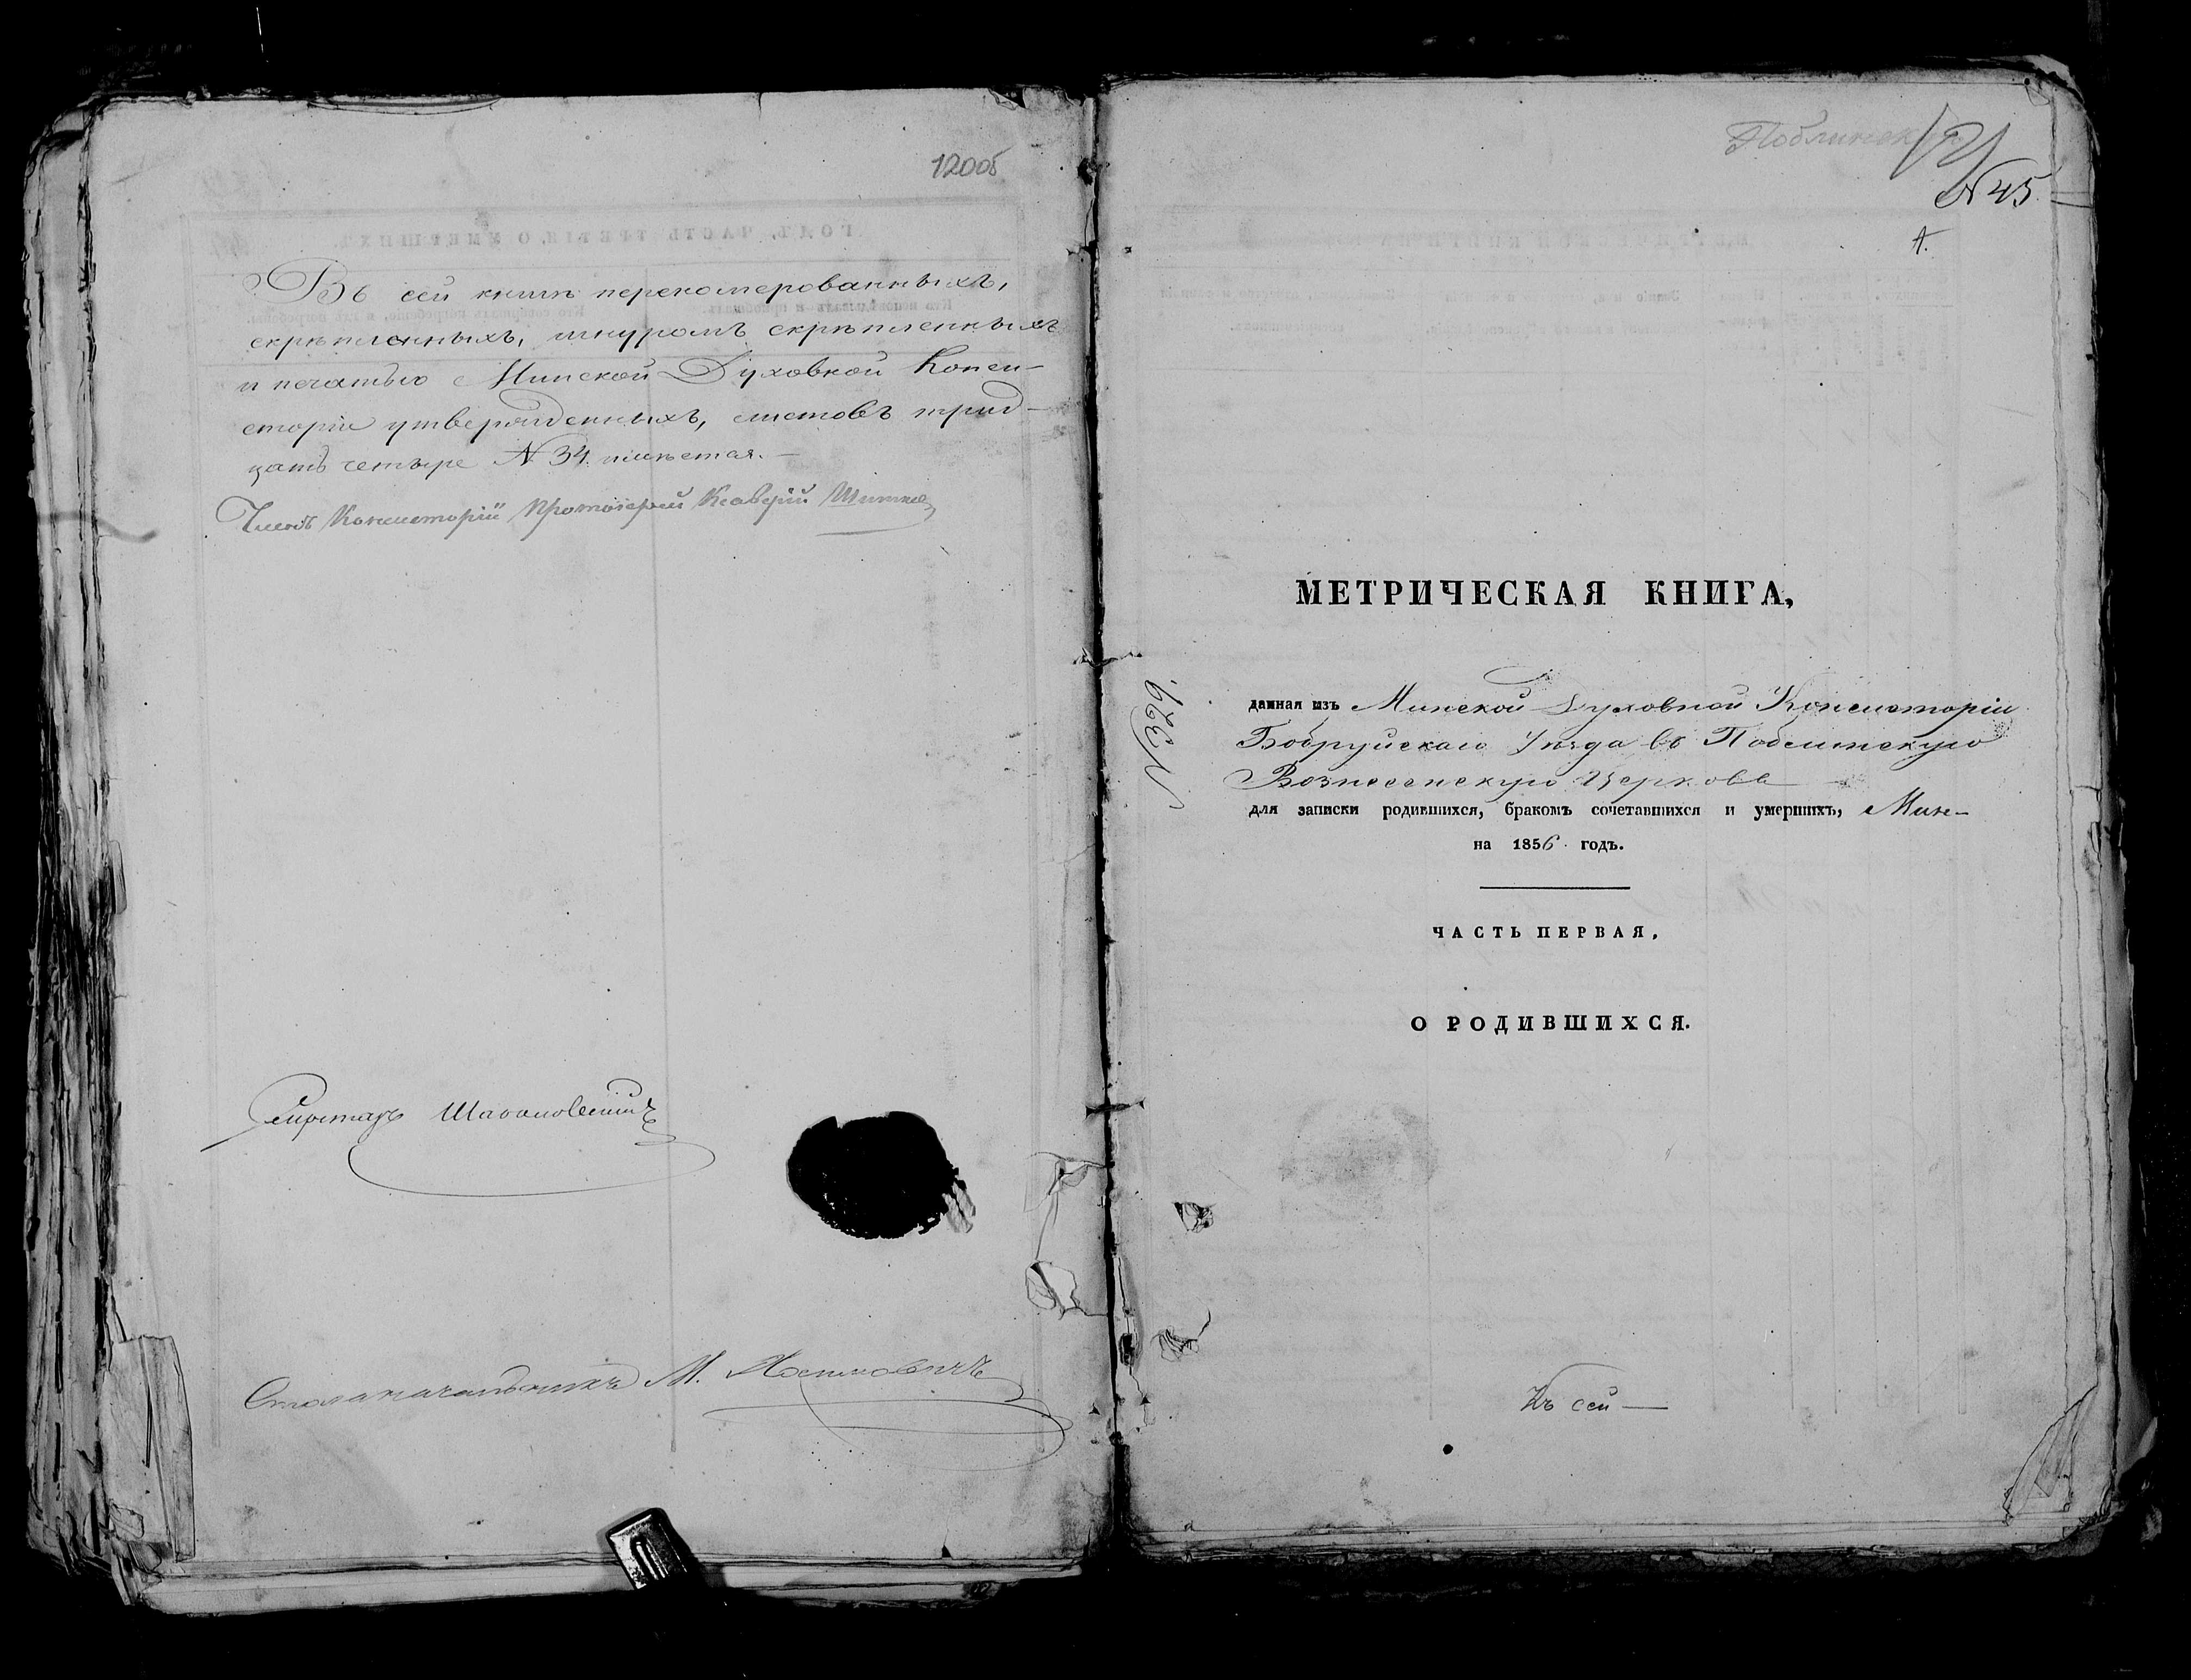 120об
Въ сей книгѣ перекомерованныхъ,
скрѣпленныхъ, шнуромъ скрѣпленныхъ
и печатью Минской Духовной Конси-
сторіи утвержденныхъ, листовъ трид-
цать четыре № 34 имѣется. —
Членъ Консисторіи Протоіерей Ксаверій
Секретарь
Столоначальникъ М.
121
№ 45
А.
МЕТРИЧЕСКАЯ КНИГА,
№ 329
данная изъ Минской Духовной Консисторіи
Бобруйскаго Уѣзда въ Поблинскую
Вознесенскую Церковь
для записки родившихся, бракомъ сочетавшихся и умершихъ, Мин-
на 1856 годъ.
ЧАСТЬ ПЕРВАЯ,
О РОДИВШИХСЯ.
Къ сей —